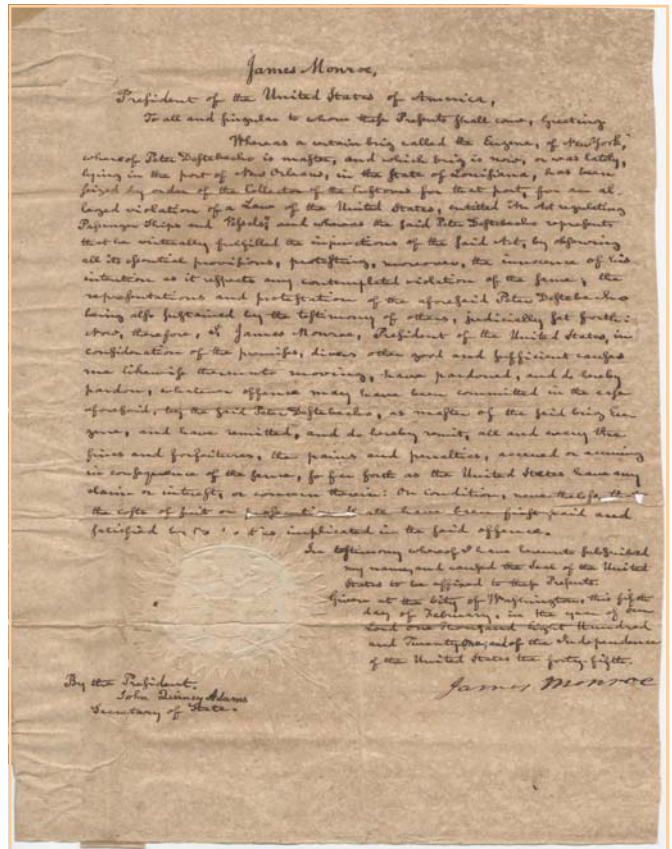 James Monroe,
President of the United States of America,
To all and singular to whom these Presents shall come, Greeting
Whereas a certain brig called the Eugene, of New York,
whereof Peter Destebecho is master, and which brig is now, or was lately,
lying in the port of New Orleans, in the State of Louisiana, has been
seized by order of the Collector of the Customs for that port, for an al-
leged violation of a Law of the United States, entitled "An Act regulating
Passenger Ships and Vessels;" and whereas the said Peter Destebecho represents
that he virtually fulfilled the injunctions of the said Act, by observing
all its essential provisions, protesting, moreover, the innocence of his
intention as it respects any contemplated violation of the same; the
representations and protestation of the aforesaid Peter Destebecho
being also sustained by the testimony of others, judicially set forth:
Now, therefore, I, James Monroe, President of the United States, in
consideration of the premises, divers other good and sufficient causes
me likewise thereunto moving, have pardoned, and do hereby
pardon, whatever offence may have been committed in the case
aforesaid, by the said Peter Destebecho, as master of the said brig Eu-
gene, and have remitted, and do hereby remit, all and every the
fines and forfeitures, the pains and penalties, accrued or accruing
in consequence of the same, so far forth as the United States have any
claim or interest, or concern therein: On condition, nevertheless, that
the costs of suit or prosecution shall have been first paid and
satisfied by implicated in the said offence.
In testimony whereof I have hereunto subscribed
my name, and caused the Seal of the United
States to be affixed to these Presents.
Given at the City of Washington, this fifth
day of February, in the year of our
Lord one Thousand Eight Hundred
and Twenty One; and of the Independence
of the United States the forty-fifth.
James Monroe
By the President.
John Quincy Adams
Secretary of State.